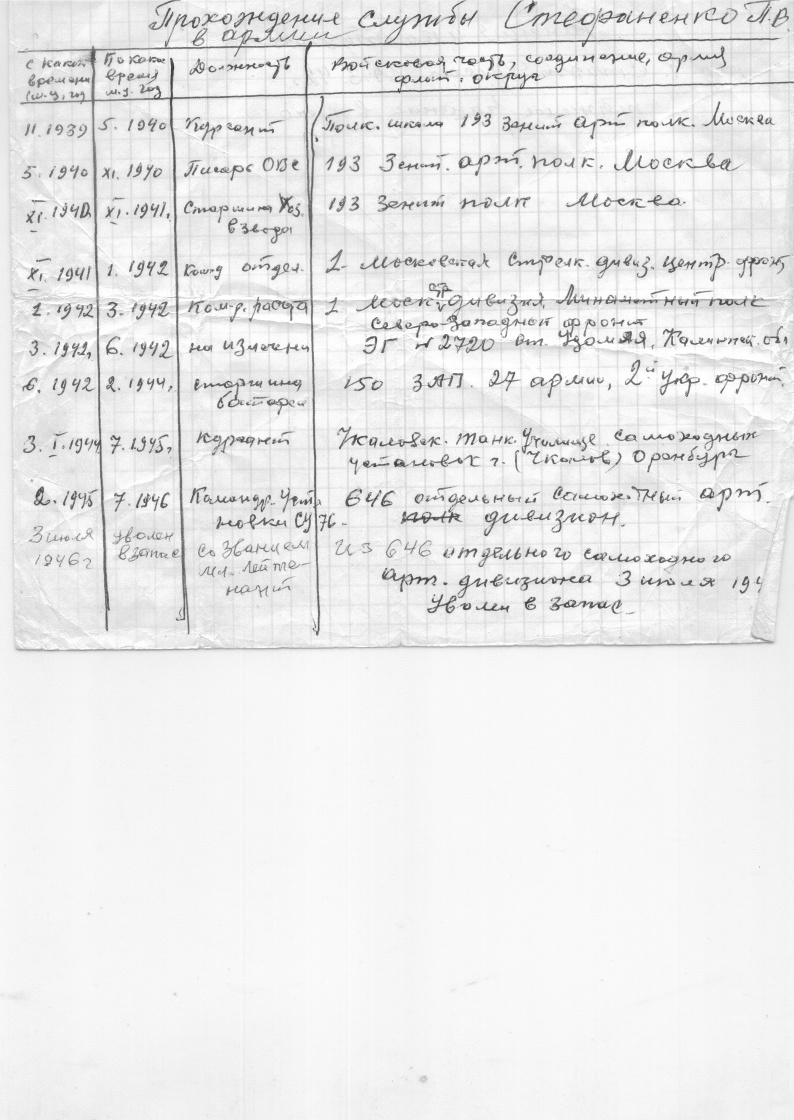 Прохождение службы Стефаненко П.В.
в армии
с какого времени (м.у. год | По какое время м.у. год | Должность | Войсковая часть, соединение, армия флот. округ
11.1939 | 5.1940 | Курсант | Полк. школа 193 Зенит арт полк. Москва
5.1940 | XI.1940 | Писарь ОВС | 193 Зенит. арт. полк. Москва
XI.1940. | XI.1941. | Старшина Хоз. | 193 Зенит полк Москва.
взвода
XI.1941 | 1.1942 | Коанд отдел. | 1. Московская Стрелк. дивиз. центр. фронт
1.1942 | 3.1942 | Ком-р. расчта | 1 Моск. стр дивизия Минометный полк
Северо-Западный фронт
3.1942. | 6.1942 | на излечени | ЭГ № 2720 ст. Удомля, Калининск. обл
6.1942 | 2.1944. | старшина | 150 ЗАП. 27 армии, 2й Укр. фронт.
батареи
3.I.1944 | 7.1945. | курсант | Чкаловск. танк. Училище самоходных
установок г. (Чкалов) Оренбург
2.1945 | 7.1946 | Командр. Уста | 646 отдельный самоходный арт.
новки СУ 76. | полк дивизион.
3 июля | уволен | со званием | из 646 отдельного самоходного
1946г | в запас | мл. лейте- | арт. дивизиона 3 июля 194
нант | Уволен в запас.